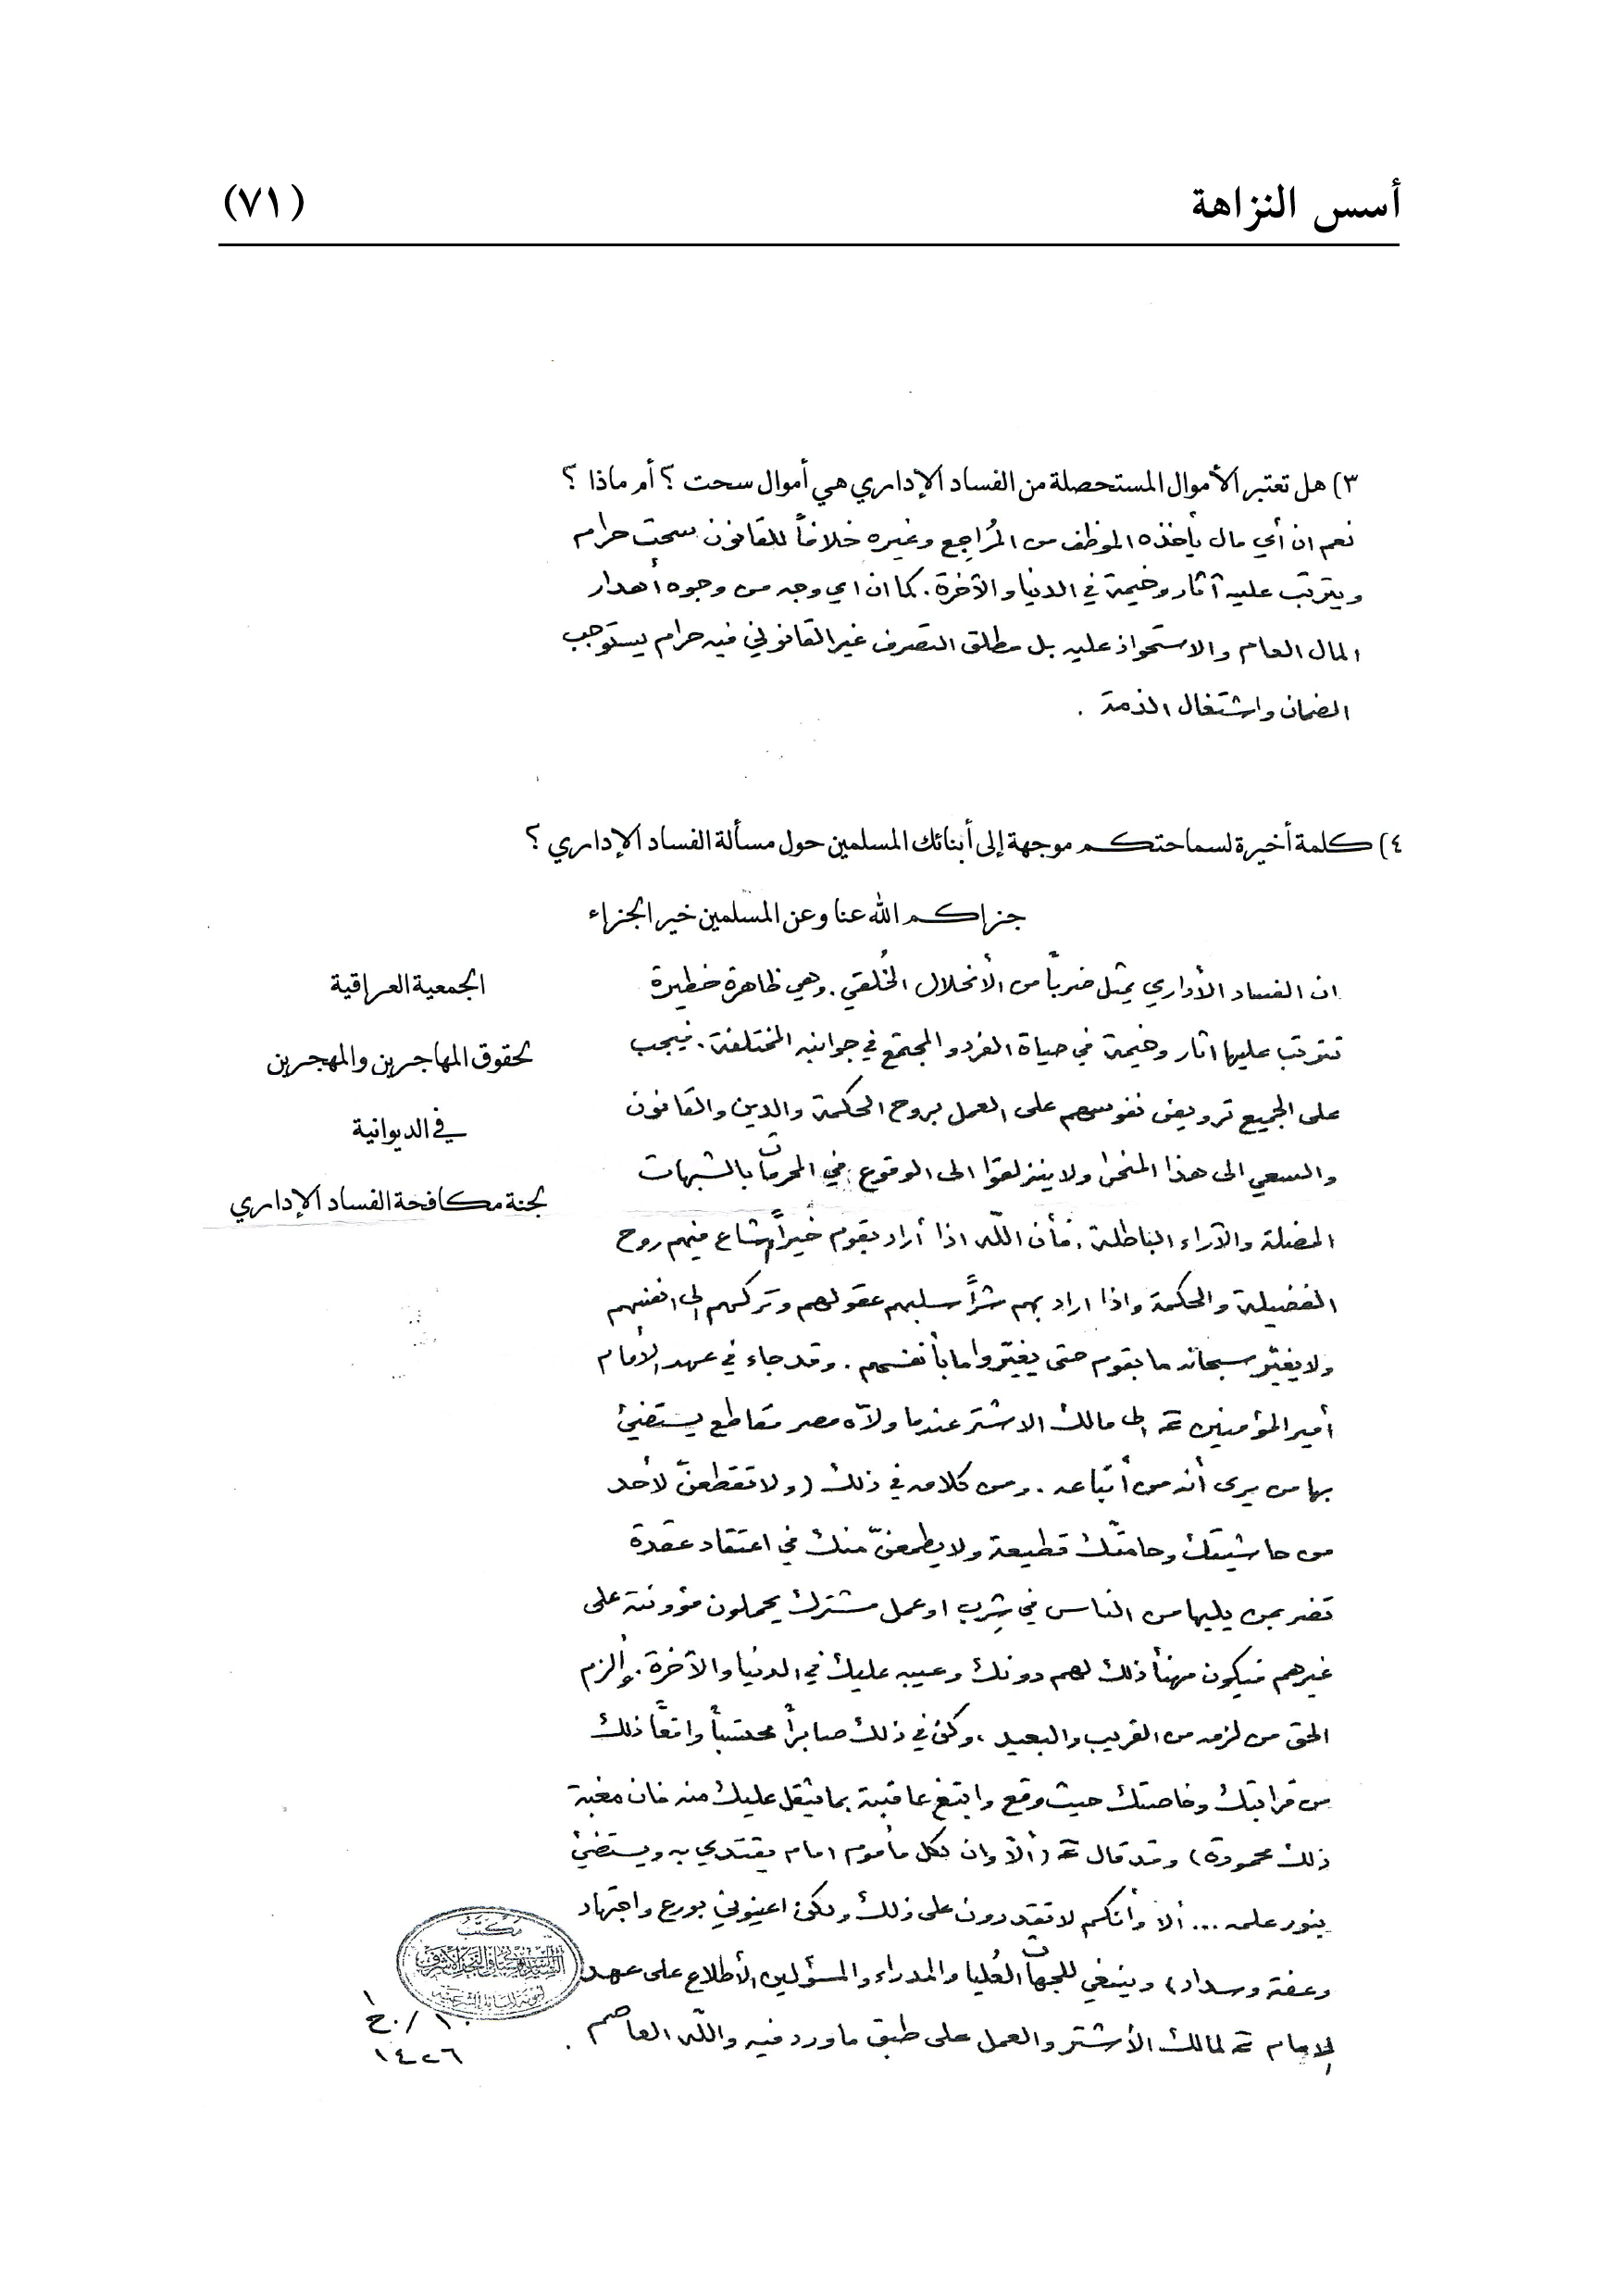 أسس النزاهة (٧١)
٣) هل تعتبر الأموال المستحصلة من الفساد الإداري هي أموال سحت ؟ أم ماذا ؟
نعم ان أي مال يأخذه الموظف من المُراجع وغيره خلافاً للقانون سحت حرام
ويترتب عليه آثار وخيمة في الدنيا والآخرة . كما ان اي وجه من وجوه أهدار
المال العام والاستحواذ عليه بل مطلق التصرف غير القانوني فيه حرام يستوجب
الضمان واشتغال الذمة .
٤) كلمة أخيرة لسماحتكم موجهة إلى أبنائك المسلمين حول مسألة الفساد الإداري ؟
جزاكم الله عنا وعن المسلمين خير الجزاء
الجمعية العراقية
لحقوق المهاجرين والمهجرين
في الديوانية
لجنة مكافحة الفساد الإداري
ان الفساد الأداري يمثل ضرباً من الأنحلال الخُلقي . وهي ظاهرة خطيرة
تترتب عليها اثار وخيمة في حياة الفرد والمجتمع في جوانبه المختلفة . فيجب
على الجميع ترويض نفوسهم على العمل بروح الحكمة والدين والقانون
والسعي الى هذا المنحى ولا ينزلقوا الى الوقوع في المحرمات بالشبهات
المضلة والآراء الباطلة . فأن اللّه اذا أراد بقوم خيراً اشاع فيهم روح
الفضيلة والحكمة واذا اراد بهم شراً سلبهم عقولهم وتركهم الى انفسهم
ولا يغيّر سبحانه ما بقوم حتى يغيّروا ما بأنفسهم . وقد جاء في عهد الأمام
أمير المؤمنين ع الى مالك الاشتر عندما ولاّه مصر مقاطع يستضيئ
بها من يرى أنه من أتباعه . ومن كلامه في ذلك (ولا تقطعنّ لأحد
من حاشيتك وحامّتك قطيعة ولا يطمعنّ منك في اعتقاد عقدة
تضر بمن يليها من الناس في شِرب او عمل مشترك يحملون مؤونته على
غيرهم فيكون مهنأ ذلك لهم دونك وعيبه عليك في الدنيا والآخرة . وألزم
الحق من لزمه من القريب والبعيد ، وكن في ذلك صابراً محتسباً واقعاً ذلك
من قرابتك وخاصتك حيث وقع وابتغ عاقبته بما يثقل عليك منه فان مغبة
ذلك محمودة) وقد قال ع (ألا وان لكل مأموم امام يقتدي به ويستضيئ
بنور علمه ... ألا وأنكم لا تقدرون على ذلك ولكن اعينوني بورع واجتهاد
وعفة وسداد) وينبغي للجهات العُليا والمدراء والمسؤلين الأطلاع على عهد
الامام ع لمالك الأشتر والعمل على طبق ما ورد فيه واللّه العاصم .
مكتب
١٤٢٦